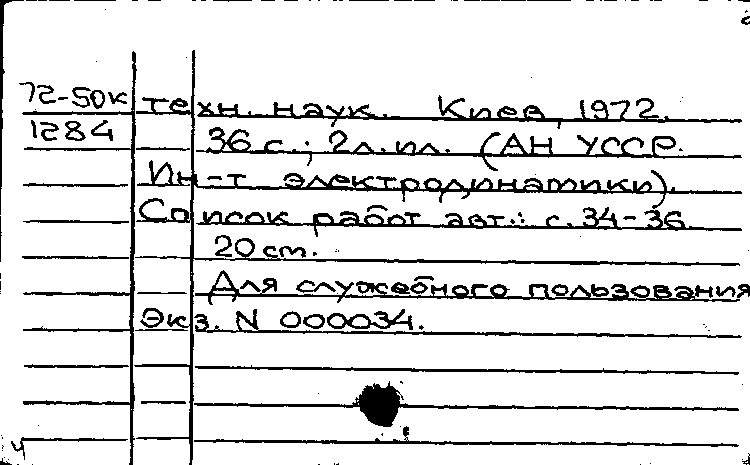 72-50к техн. наук. Киев, 1972.
1284 36 с.; 2 л. ил. (АН УССР.
Ин-т электродинамики).
Список работ авт.: с. 34-36.
20 см.
Для служебного пользования
Экз. N 000034.
ч